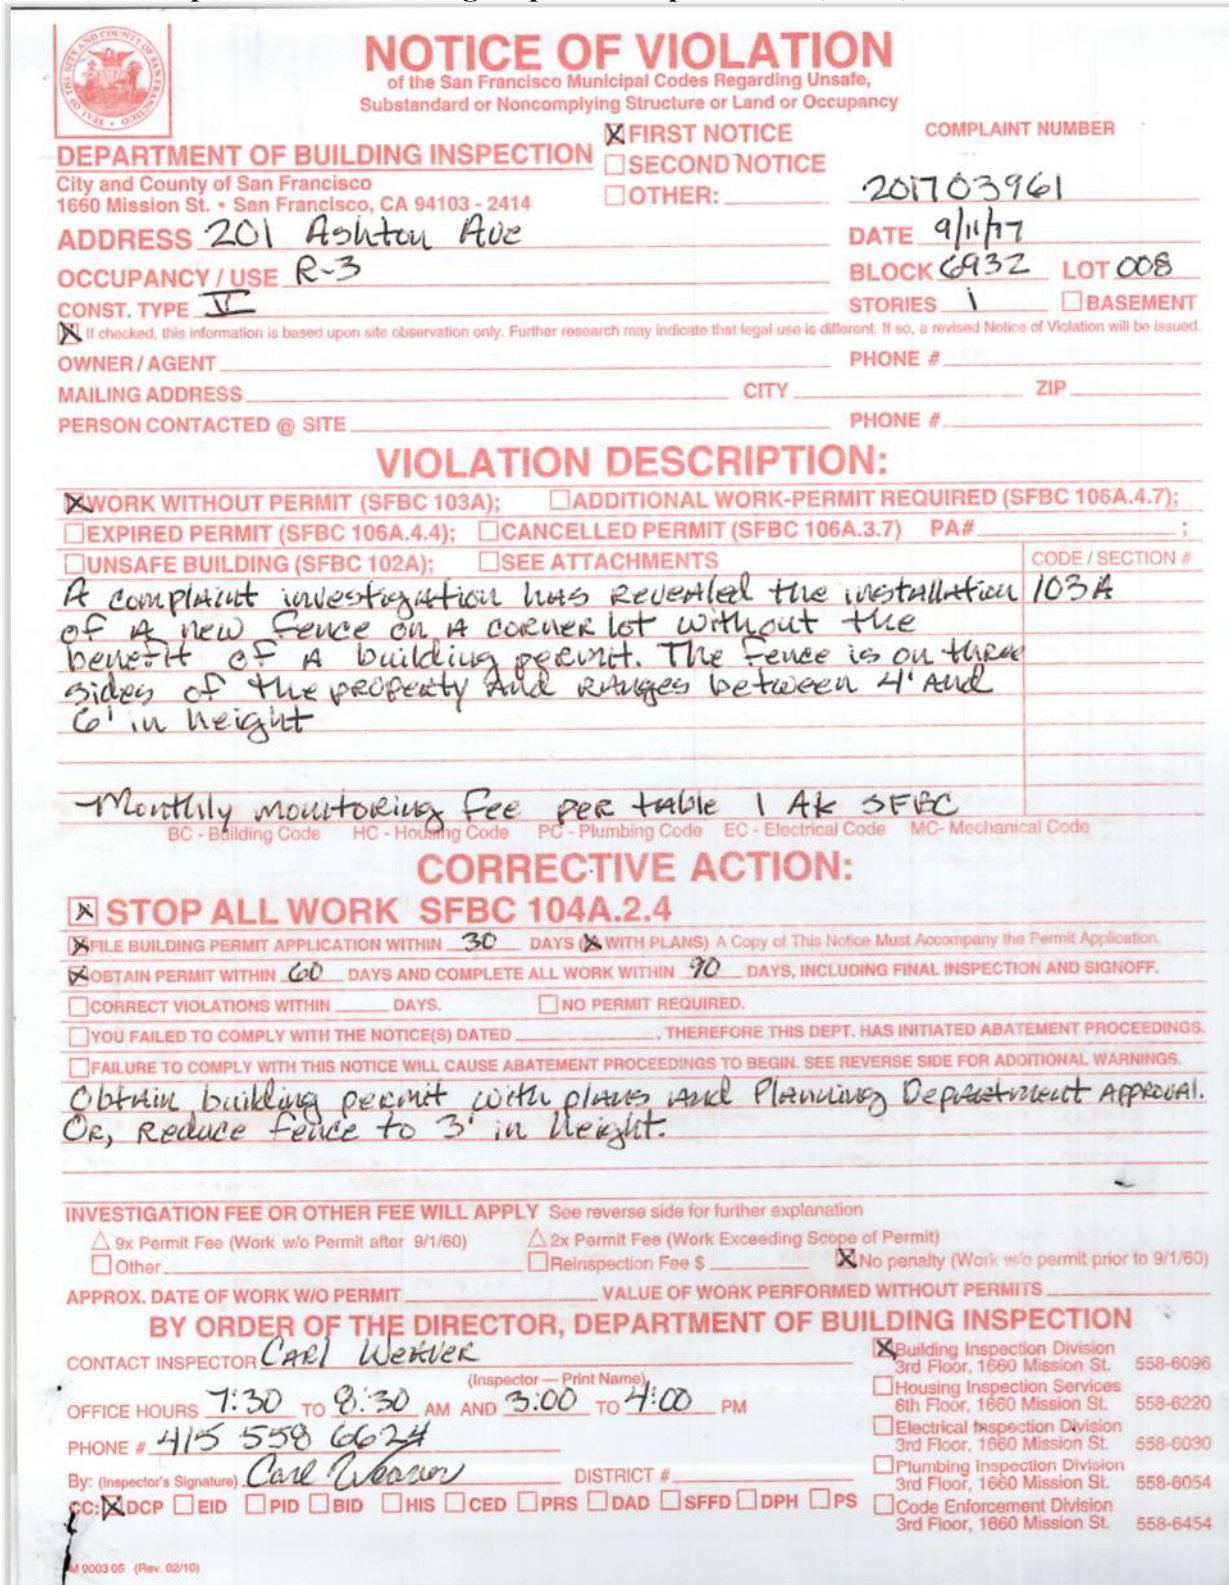 NOTICE OF VIOLATION
of the San Francisco Municipal Codes Regarding Unsafe,
Substandard or Noncomplying Structure or Land or Occupancy
DEPARTMENT OF BUILDING INSPECTION
City and County of San Francisco
1660 Mission St. • San Francisco, CA 94103 - 2414
FIRST NOTICE
SECOND NOTICE
OTHER:
COMPLAINT NUMBER
201703961
ADDRESS 201 Ashton Ave
DATE 9/11/17
OCCUPANCY / USE R-3
BLOCK 6932 LOT 008
CONST. TYPE V
STORIES 1 BASEMENT
If checked, this information is based upon site observation only. Further research may indicate that legal use is different. If so, a revised Notice of Violation will be issued.
OWNER / AGENT PHONE #
MAILING ADDRESS CITY ZIP
PERSON CONTACTED @ SITE PHONE #
VIOLATION DESCRIPTION:
WORK WITHOUT PERMIT (SFBC 103A); ADDITIONAL WORK-PERMIT REQUIRED (SFBC 106A.4.7);
EXPIRED PERMIT (SFBC 106A.4.4); CANCELLED PERMIT (SFBC 106A.3.7) PA# ;
UNSAFE BUILDING (SFBC 102A); SEE ATTACHMENTS CODE / SECTION #
A complaint investigation has revealed the installation 103A
of a new fence on a corner lot without the
benefit of a building permit. The fence is on three
sides of the property and ranges between 4' and
6' in height
Monthly monitoring fee per table 1 AK SFBC
BC - Building Code HC - Housing Code PC - Plumbing Code EC - Electrical Code MC- Mechanical Code
CORRECTIVE ACTION:
STOP ALL WORK SFBC 104A.2.4
FILE BUILDING PERMIT APPLICATION WITHIN 30 DAYS (WITH PLANS) A Copy of This Notice Must Accompany the Permit Application.
OBTAIN PERMIT WITHIN 60 DAYS AND COMPLETE ALL WORK WITHIN 90 DAYS, INCLUDING FINAL INSPECTION AND SIGNOFF.
CORRECT VIOLATIONS WITHIN DAYS. NO PERMIT REQUIRED.
YOU FAILED TO COMPLY WITH THE NOTICE(S) DATED , THEREFORE THIS DEPT. HAS INITIATED ABATEMENT PROCEEDINGS.
FAILURE TO COMPLY WITH THIS NOTICE WILL CAUSE ABATEMENT PROCEEDINGS TO BEGIN. SEE REVERSE SIDE FOR ADDITIONAL WARNINGS.
Obtain building permit with plans and Planning Department Approval.
Or, Reduce fence to 3' in height.
INVESTIGATION FEE OR OTHER FEE WILL APPLY See reverse side for further explanation
9x Permit Fee (Work w/o Permit after 9/1/60) 2x Permit Fee (Work Exceeding Scope of Permit)
Other Reinspection Fee $ No penalty (Work w/o permit prior to 9/1/60)
APPROX. DATE OF WORK W/O PERMIT VALUE OF WORK PERFORMED WITHOUT PERMITS
BY ORDER OF THE DIRECTOR, DEPARTMENT OF BUILDING INSPECTION
CONTACT INSPECTOR Carl Weaver
(Inspector — Print Name)
OFFICE HOURS 7:30 TO 8:30 AM AND 3:00 TO 4:00 PM
PHONE # 415 558 6624
By: (Inspector's Signature) Carl Weaver DISTRICT #
CC: DCP EID PID BID HIS CED PRS DAD SFFD DPH PS
Building Inspection Division
3rd Floor, 1660 Mission St. 558-6096
Housing Inspection Services
6th Floor, 1660 Mission St. 558-6220
Electrical Inspection Division
3rd Floor, 1660 Mission St. 558-6030
Plumbing Inspection Division
3rd Floor, 1660 Mission St. 558-6054
Code Enforcement Division
3rd Floor, 1660 Mission St. 558-6454
M 9003 05 (Rev. 02/10)